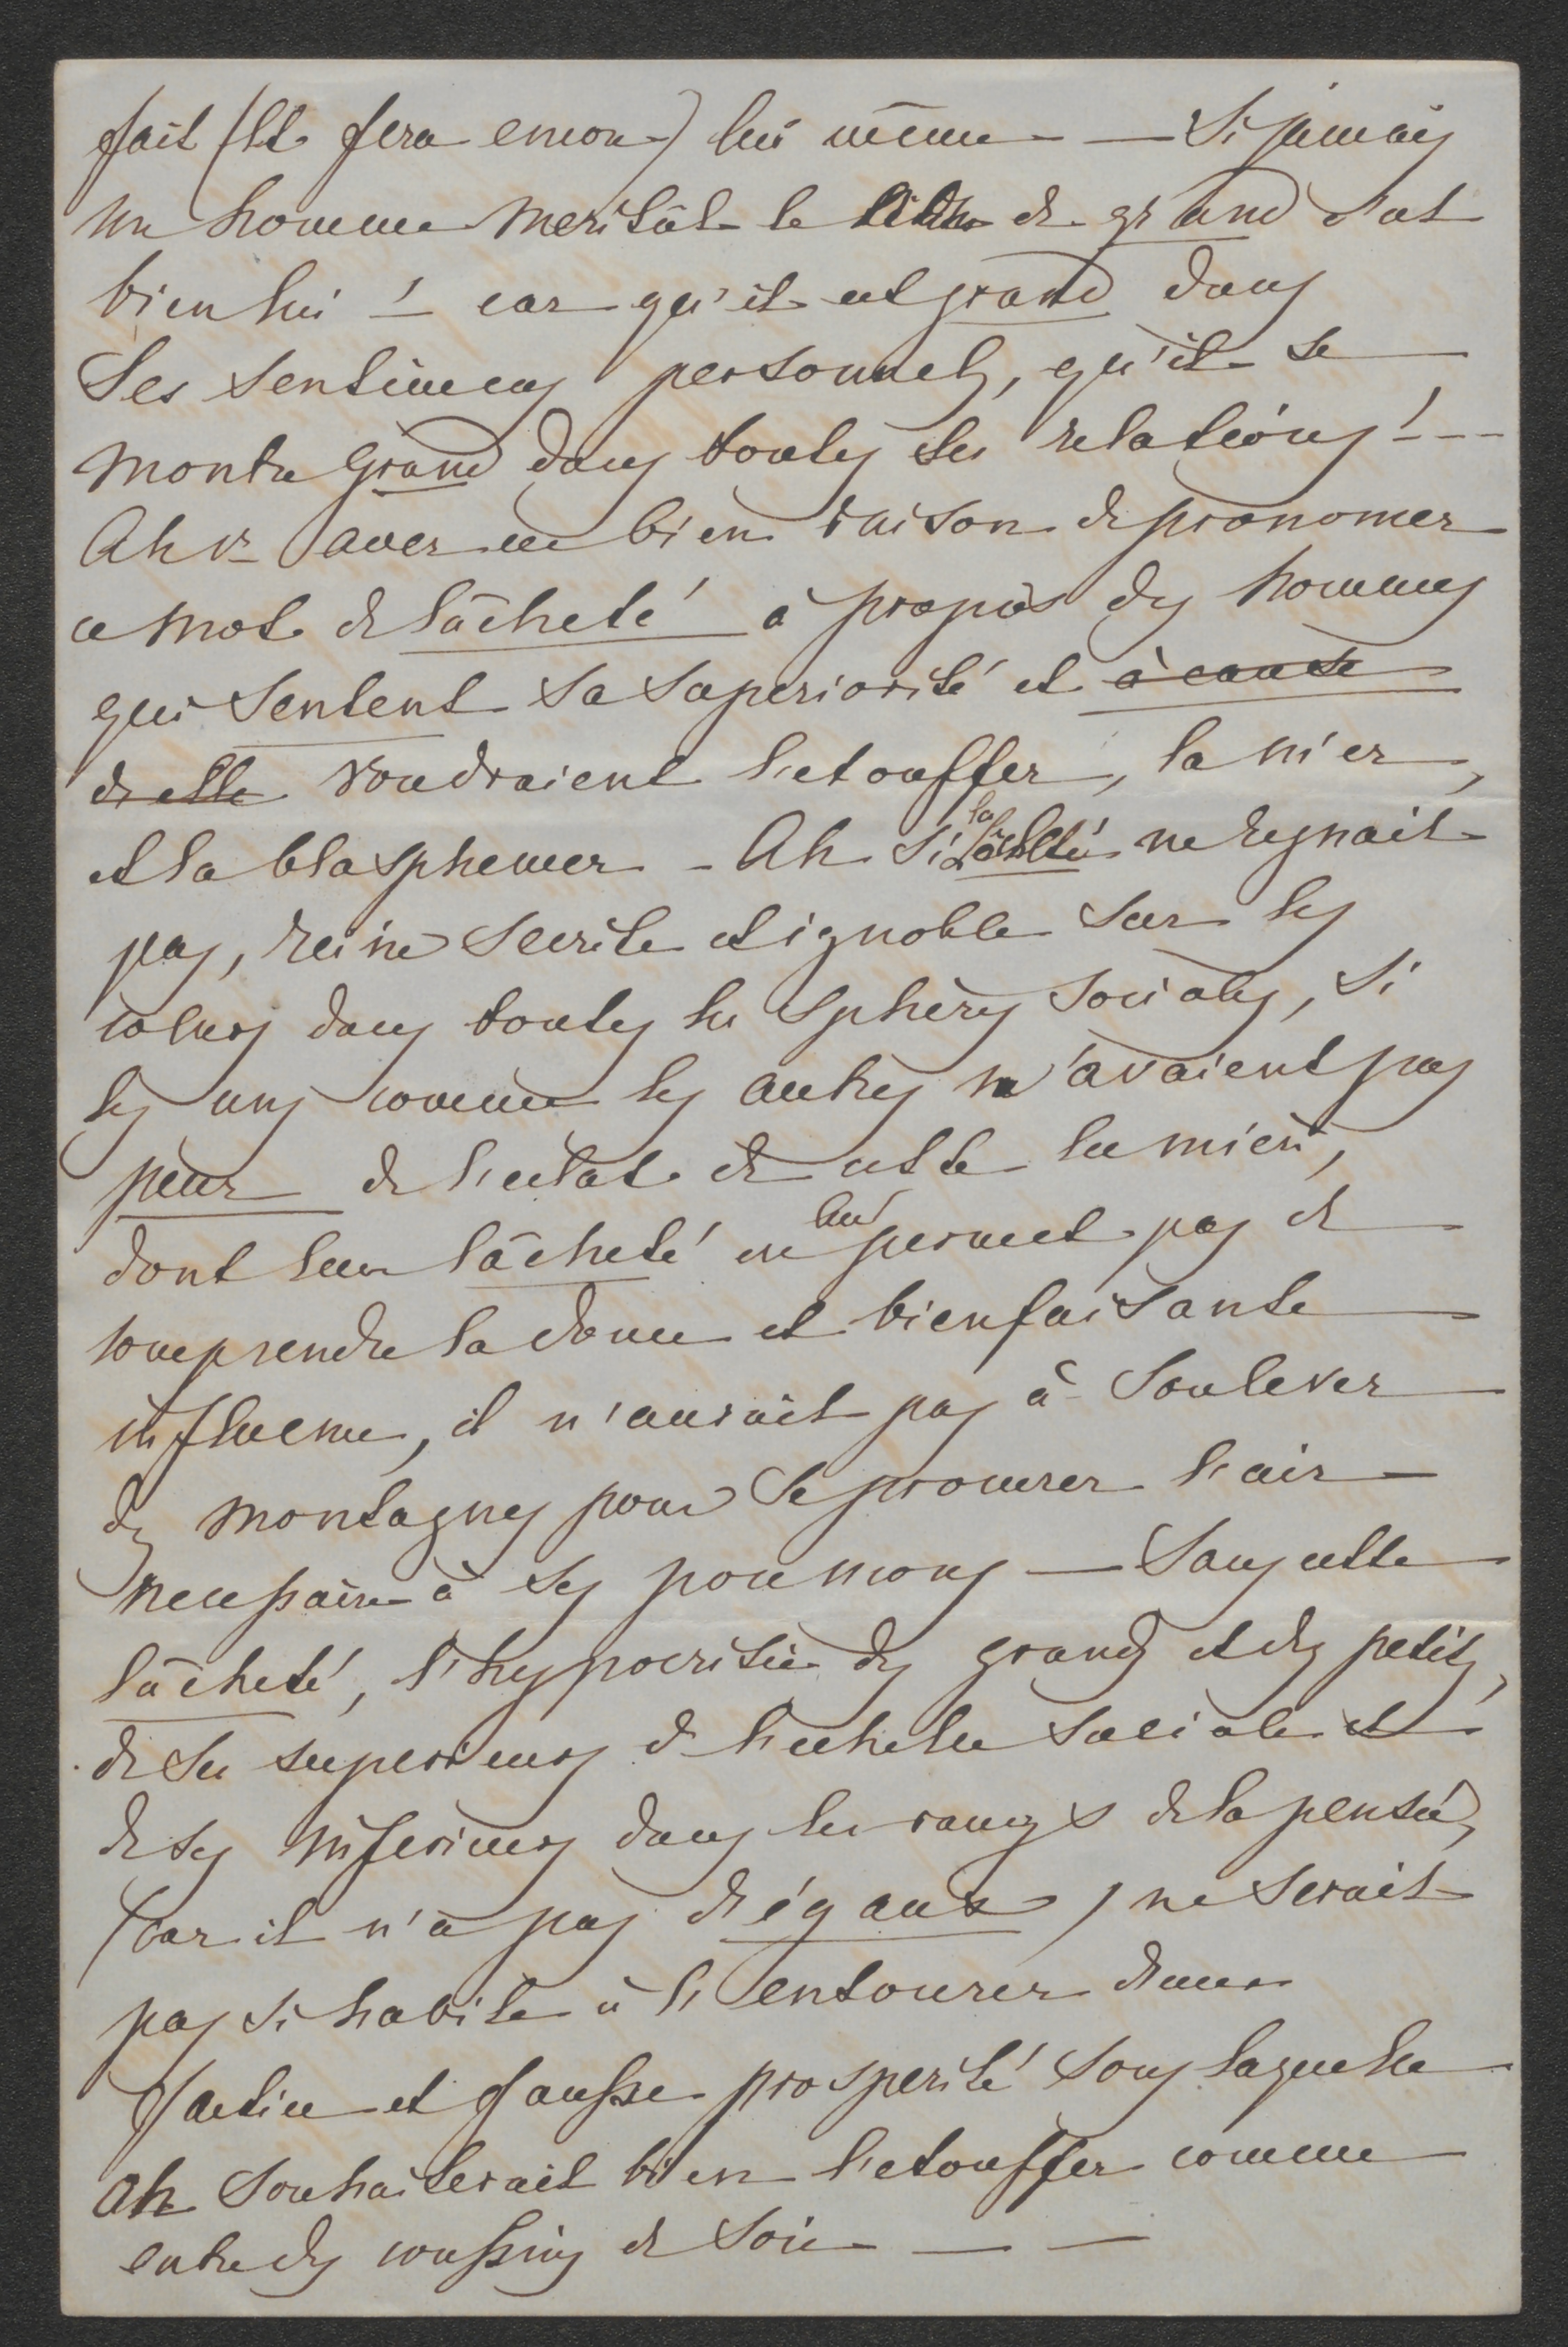 fait (et fera encore) lui même — Si jamais
un homme meritât le titre de grand c'est
bien lui ! — car qu'il est grand dans
Ses sentimens personnels, qu'il se
montre grand dans toutes ses relations ! — —
Ah vs avez eu bien raison de prononcer
ce mot de lâcheté à propos des hommes
qui Sentent sa superiorité et à cause
de elle voudraient l'etouffer, la nier,
et la blasphemer – Ah Si la lâcheté ne regnait
pas, reine secrete et ignoble sur les
cœurs dans toutes les spheres sociales, si
les uns comme les autres n'avaient pas
peur de l'eclat de cette lumière,
dont leur lâcheté ne leur permet pas de
comprendre la douce et bienfaisante
influence, il n'aurait pas à soulever
des montagnes pour se procurer l'air
necessaire à ses poumons — Sans cette
lâcheté, l'hypocrisie des grands et des petits,
de ses superieurs de l'echelle sociale et
de ses inferieurs dans les rangs de la pensée,
(car il n'a pas d'égaux) ne serait
pas si habile à l'entourer d'une
factice et fausse prosperité sous laquelle
on souhaiterait bien l'etouffer comme
entre des coussins de soie — —